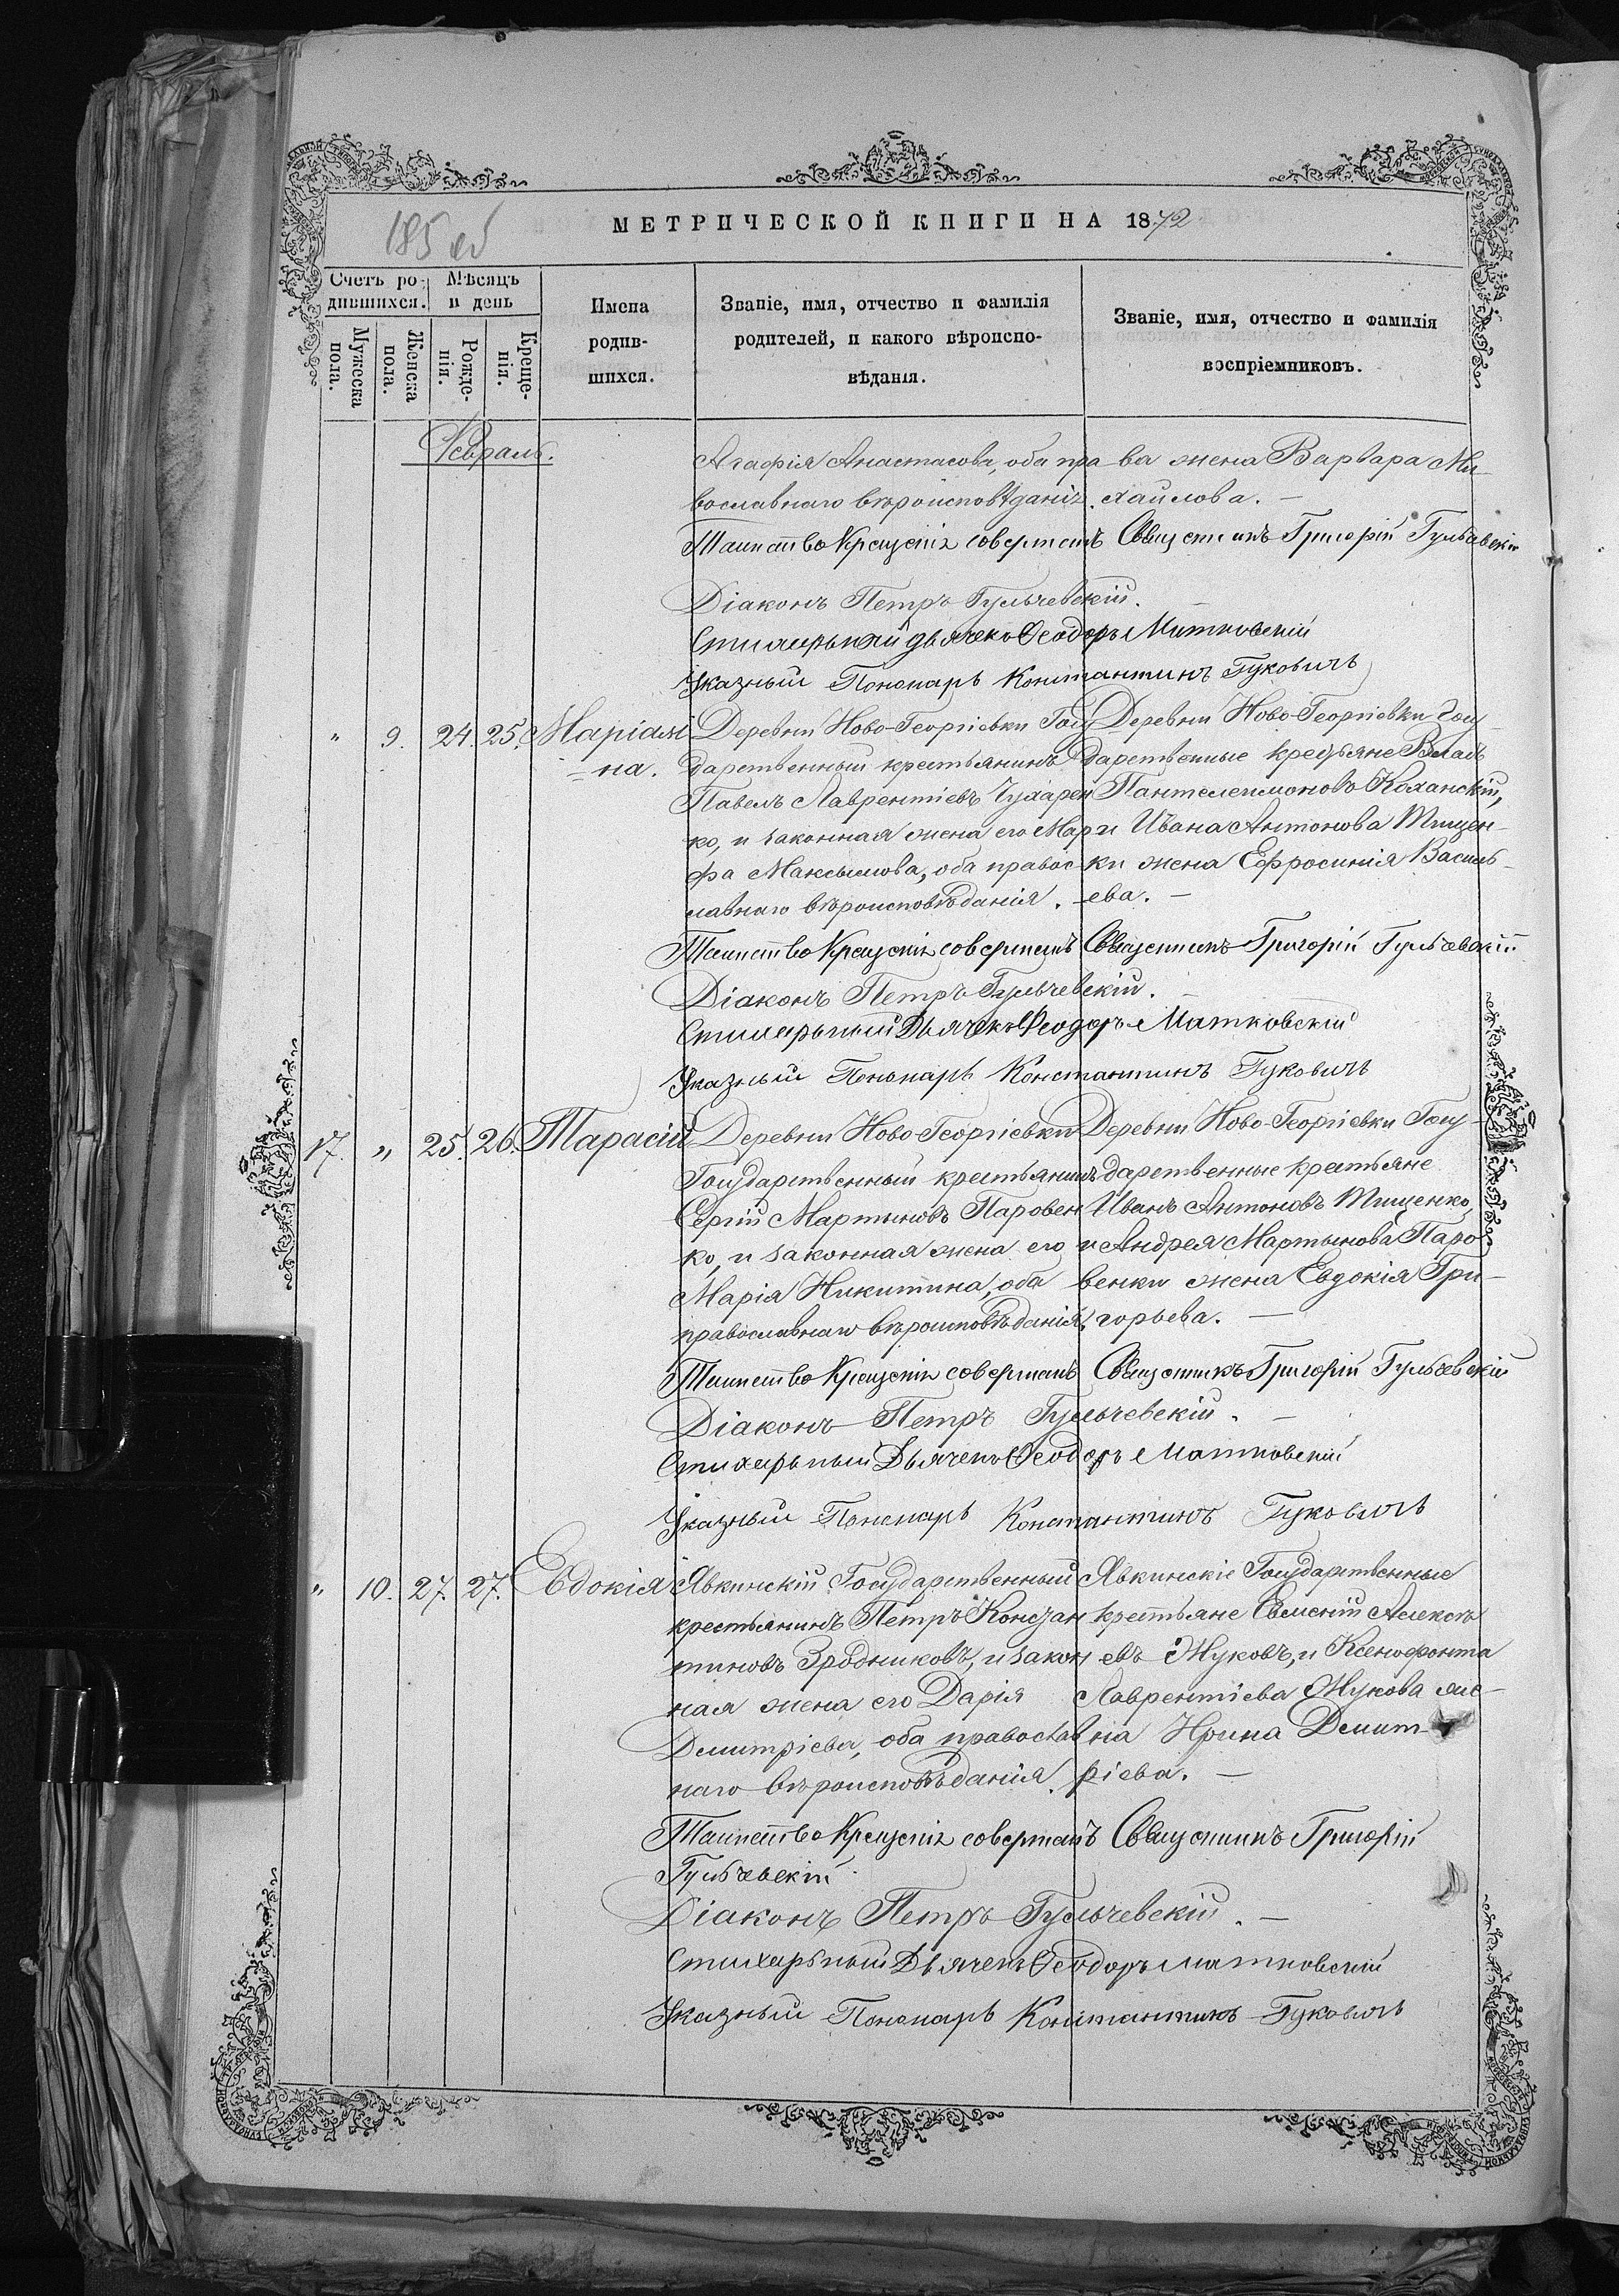 185 об
МЕТРИЧЕСКОЙ КНИГИ НА 1872
Счетъ родившихся.
Мѣсяцъ и день
Мужеска пола.
Женска пола.
Рожденія.
Крещенія.
Имена родившихся.
Званіе, имя, отчество и фамилія родителей, и какого вѣроисповѣданія.
Званіе, имя, отчество и фамилія воспріемниковъ.
Февраль.
Агафія Анастасова, оба пра
вославнаго вѣроисповѣданія.
ва жена Варвара Ми-
хайлова. —
Таинство Крещенія совершилъ Священникъ Григорій Гульчевскій
Діаконъ Петръ Гульчевскій.
Стихарный дьячекъ Ѳеодоръ Матковскій
Указный Пономарь Константинъ Гуковичъ
" 9. 24. 25. Маріами
=на.
Деревни Ново-Георгіевки Госу
дарственный крестьянинъ
Павелъ Лаврентіевъ Чухарен
ко, и законная жена его Мар
фа Максимова, оба правос
лавнаго вѣроисповѣданія.
Деревни Ново-Георгіевки Госу-
дарственные крестьяне Власъ
Пантелеимоновъ Коханскій,
и Ивана Антонова Тищен-
ки жена Ефросинія Василь-
ева. —
Таинство Крещенія совершилъ Священникъ Григорій Гульчевскій
Діаконъ Петръ Гульчевскій. —
Стихарный Дьячекъ Ѳеодоръ Матковскій
Указный Пономарь Константинъ Гуковичъ
17. " 25. 26. Тарасій
Деревни Ново-Георгіевки
Государственный крестьянинъ
Сергій Мартыновъ Паровен
ко, и законная жена его
Марія Никитина, оба
православнаго вѣроисповѣданія.
Деревни Ново-Георгіевки Госу-
дарственные крестьяне
Иванъ Антоновъ Тищенко,
и Андрея Мартынова Паро
венки жена Евдокія Гри-
горьева. —
Таинство Крещенія совершилъ Священникъ Григорій Гульчевскій
Діаконъ Петръ Гульчевскій. —
Стихарный Дьячекъ Ѳеодоръ Матковскій
Указный Пономарь Константинъ Гуковичъ
" 10. 27. 27. Евдокія
Явкинскій Государственный
крестьянинъ Петръ Констан
тиновъ Зродниковъ, и закон
ная жена его Дарія
Димитріева, оба православ
наго вѣроисповѣданія.
Явкинскіе Государственные
крестьяне Евменій Алексѣ
евъ Жуковъ, и Ксенофонта
Лаврентіева Жукова же-
на Ирина Димит-
ріева. —
Таинство Крещенія совершилъ Священникъ Григорій
Гульчевскій
Діаконъ Петръ Гульчевскій. —
Стихарный Дьячекъ Ѳеодоръ Матковскій
Указный Пономарь Константинъ Гуковичъ